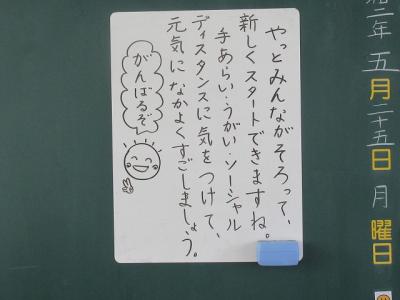 二年 五月二十五日 月曜日
やっとみんながそろって、
新しくスタートできますね。
手あらい・うがい・ソーシャル
ディスタンスに気をつけて、
元気になかよくすごしましょう。
がんばるぞ